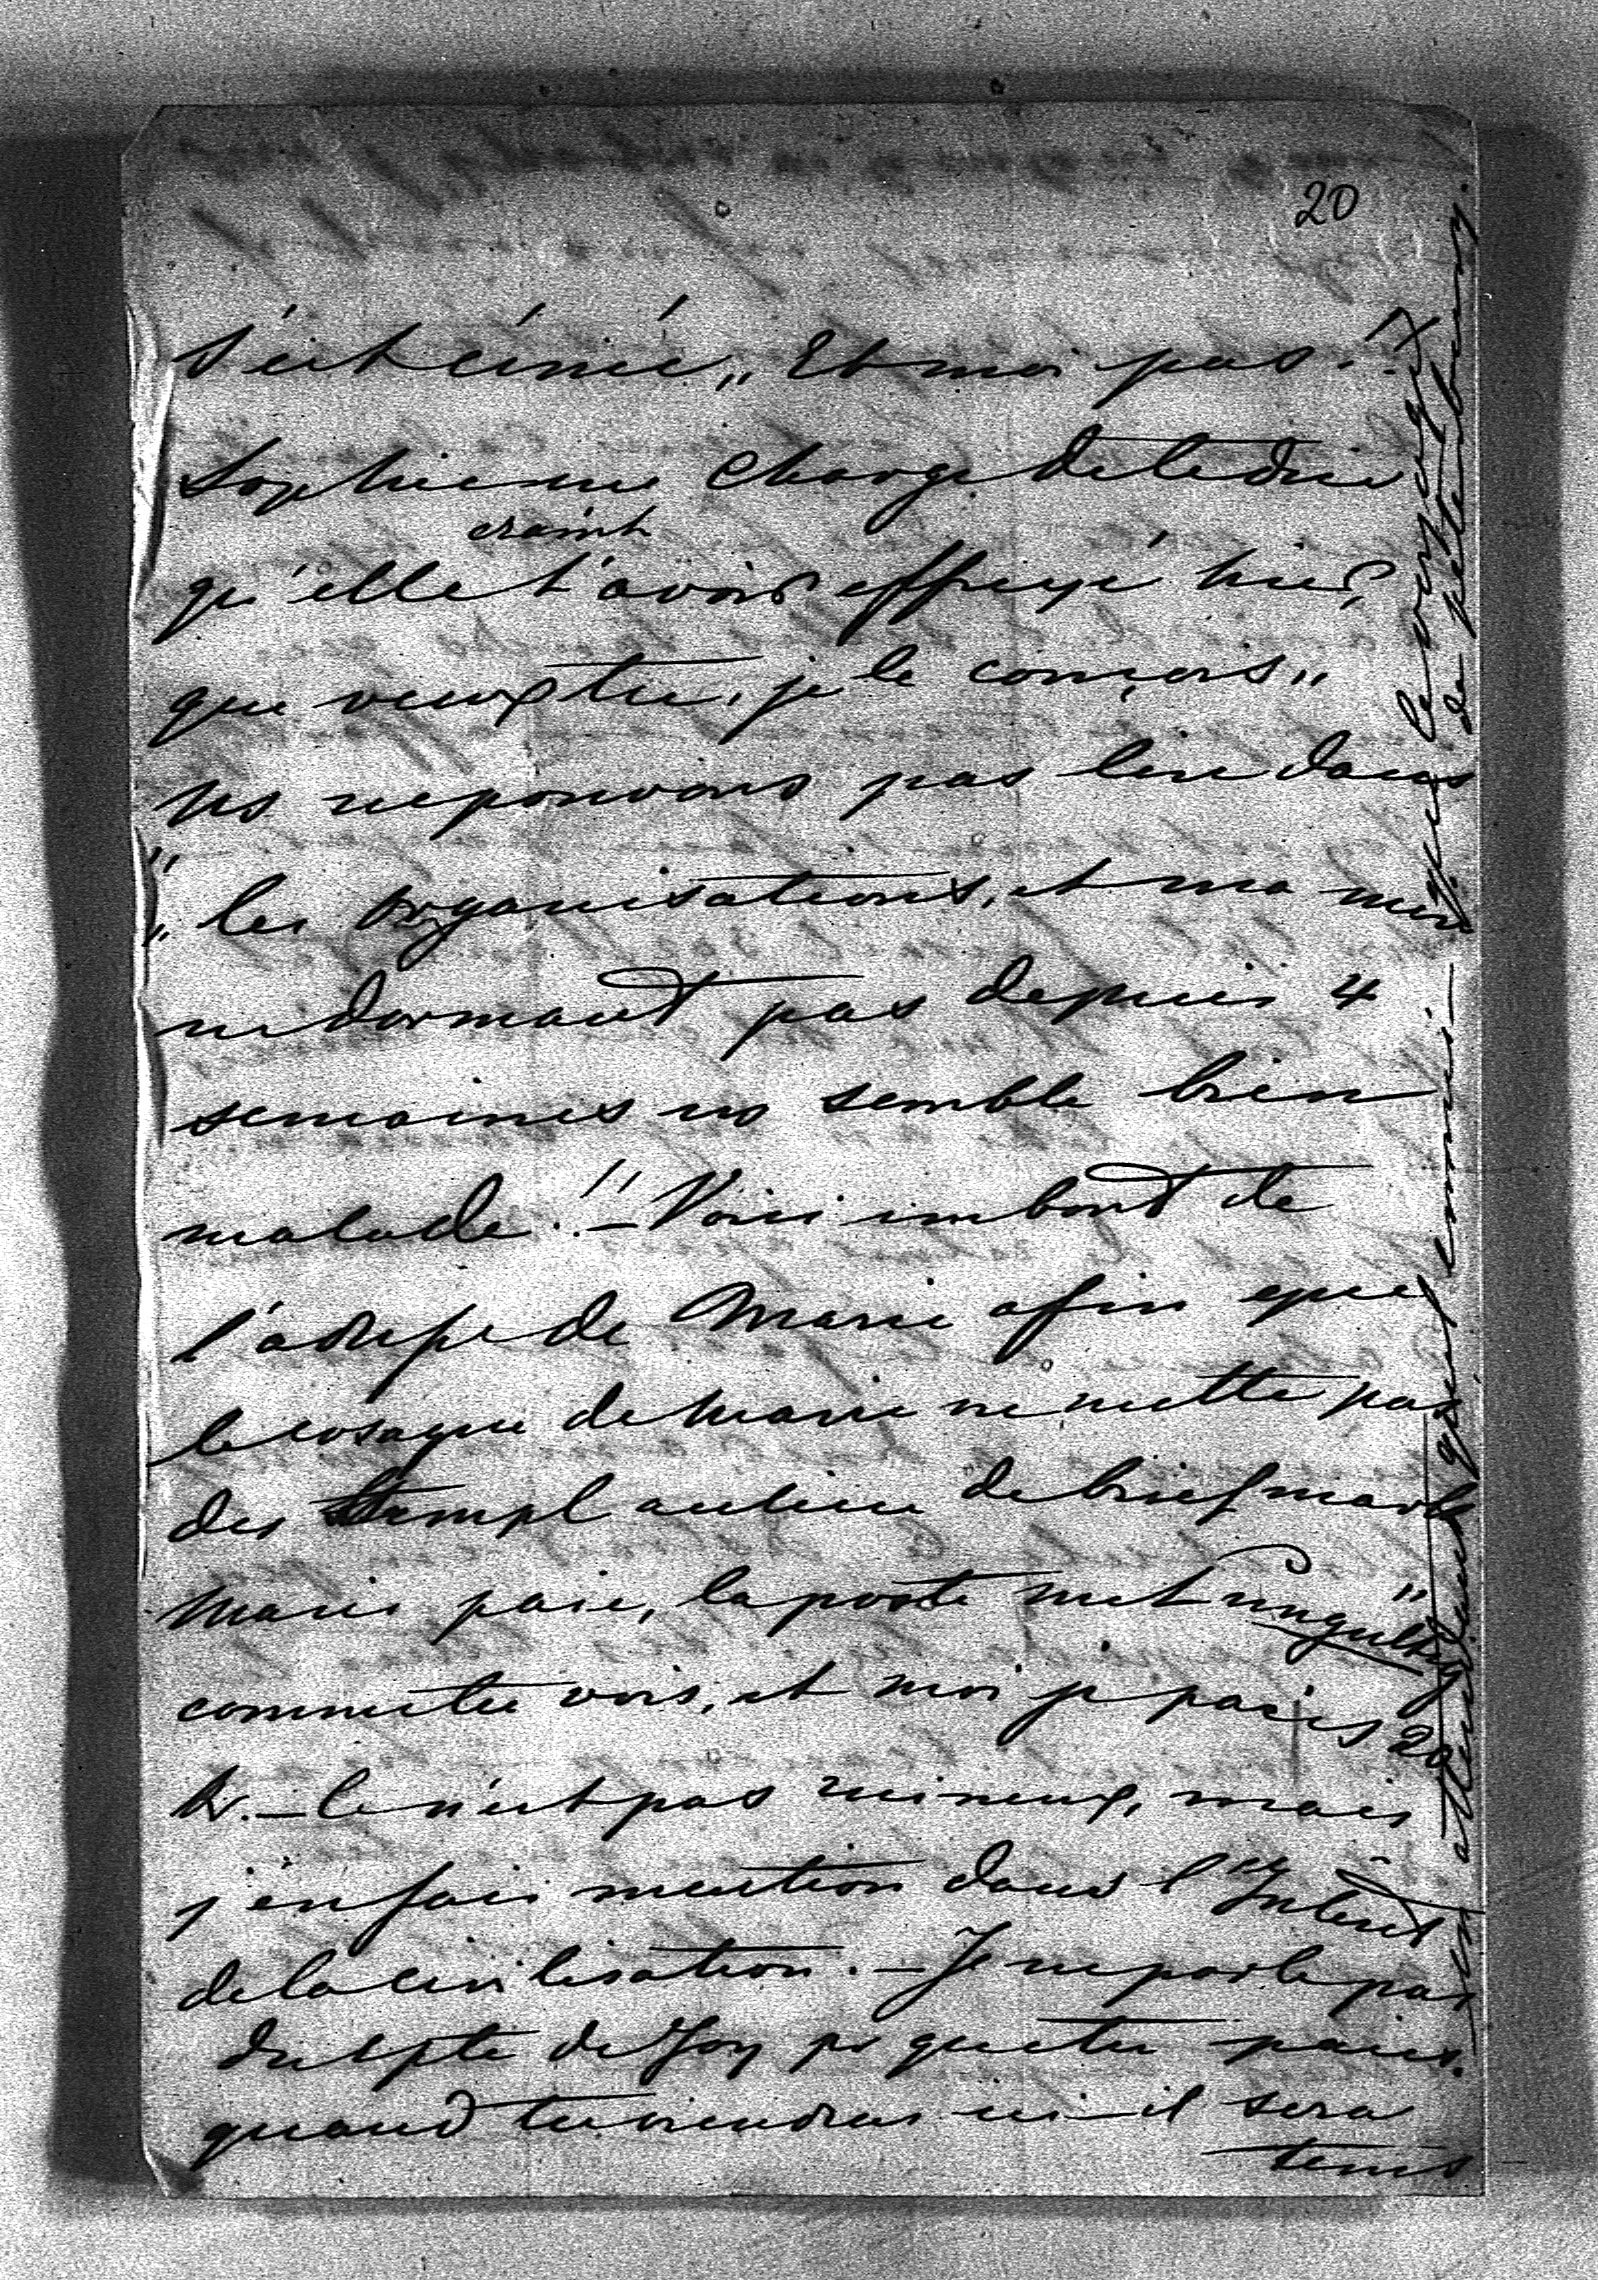 20
s'est écrié „Et moi pas!"
Sophie me charge de te dire
craint
qu'elle t'avoir effrayé hier,
que veux tu, je le conçois„
Ns ne pouvons pas lire dans
„les organisations, et ma mère
ne dormant pas depuis 4
semaines ns semble bien
malade!" — Voici un bout de
l'adresse de Marie afin que
le cosaque de Marie ne mette pas
des Stempl au lieu de briefmark
Marie paie, la poste met ungültig"
comme tu vois, et moi je paies 20
k. — Ce n'est pas ruineux, mais
j'en fais mention dans l'Intérêt
de la civilisation. — Je ne parle pas
du que tu paies.
quand tu viendras ici — il sera
tems
en attendant quel ennui —
que le voyage
de Petersbourg.